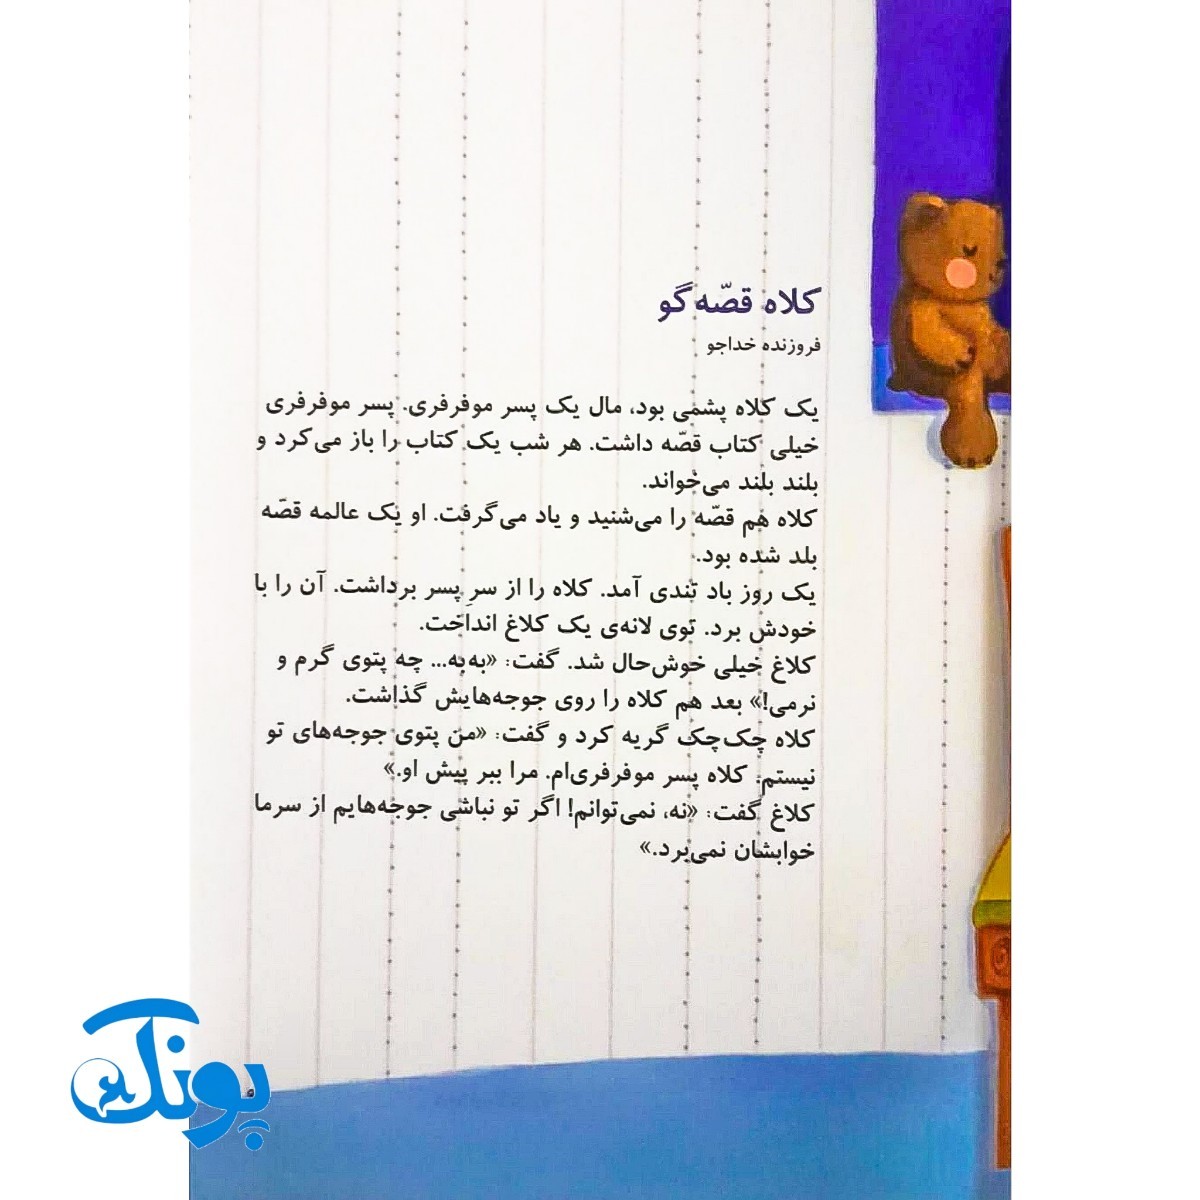 کلاه قصّه‌گو
فروزنده خداجو
یک کلاه پشمی بود، مال یک پسر موفرفری. پسر موفرفری
خیلی کتاب قصّه داشت. هر شب یک کتاب را باز می‌کرد و
بلند بلند می‌خواند.
کلاه هم قصّه را می‌شنید و یاد می‌گرفت. او یک عالمه قصّه
بلد شده بود.
یک روز باد تندی آمد. کلاه را از سرِ پسر برداشت. آن را با
خودش برد. توی لانه‌ی یک کلاغ انداخت.
کلاغ خیلی خوش‌حال شد. گفت: «به‌به... چه پتوی گرم و
نرمی!» بعد هم کلاه را روی جوجه‌هایش گذاشت.
کلاه چک‌چک گریه کرد و گفت: «من پتوی جوجه‌های تو
نیستم. کلاه پسر موفرفری‌ام. مرا ببر پیش او.»
کلاغ گفت: «نه، نمی‌توانم! اگر تو نباشی جوجه‌هایم از سرما
خوابشان نمی‌برد.»
پونک